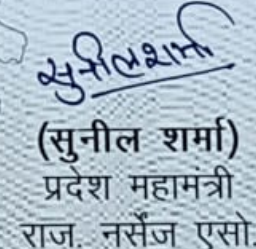 सुनील शर्मा
(सुनील शर्मा)
प्रदेश महामंत्री
राज. नर्सेज एसो.